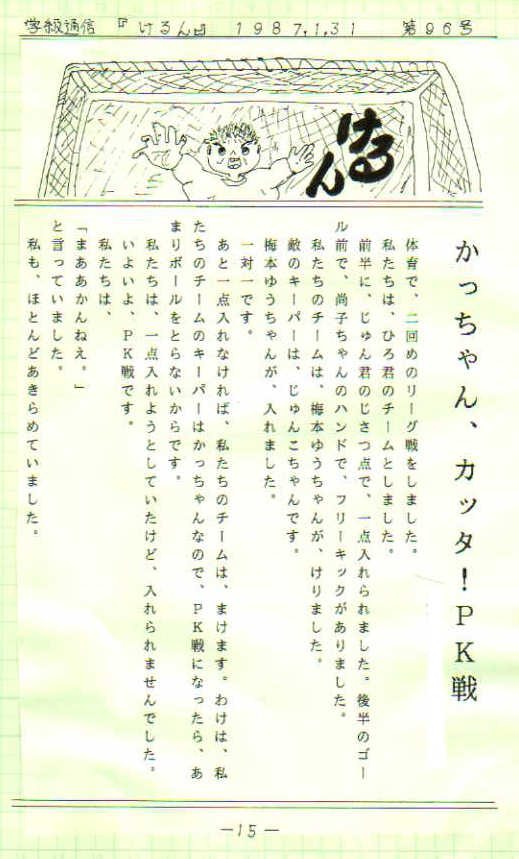 学級通信 『けるん』 1987,1,31 第96号
けるん
かっちゃん、カッタ！PK戦
体育で、二回めのリーグ戦をしました。
私たちは、ひろ君のチームとしました。
前半に、じゅん君のじさつ点で、一点入れられました。後半のゴー
ル前で、尚子ちゃんのハンドで、フリーキックがありました。
私たちのチームは、梅本ゆうちゃんが、けりました。
敵のキーパーは、じゅんこちゃんです。
梅本ゆうちゃんが、入れました。
一対一です。
あと一点入れなければ、私たちのチームは、まけます。わけは、私
たちのチームのキーパーはかっちゃんなので、PK戦になったら、あ
まりボールをとらないからです。
私たちは、一点入れようとしていたけど、入れられませんでした。
いよいよ、PK戦です。
私たちは、
「まああかんねえ。」
と言っていました。
私も、ほとんどあきらめていました。
—15—